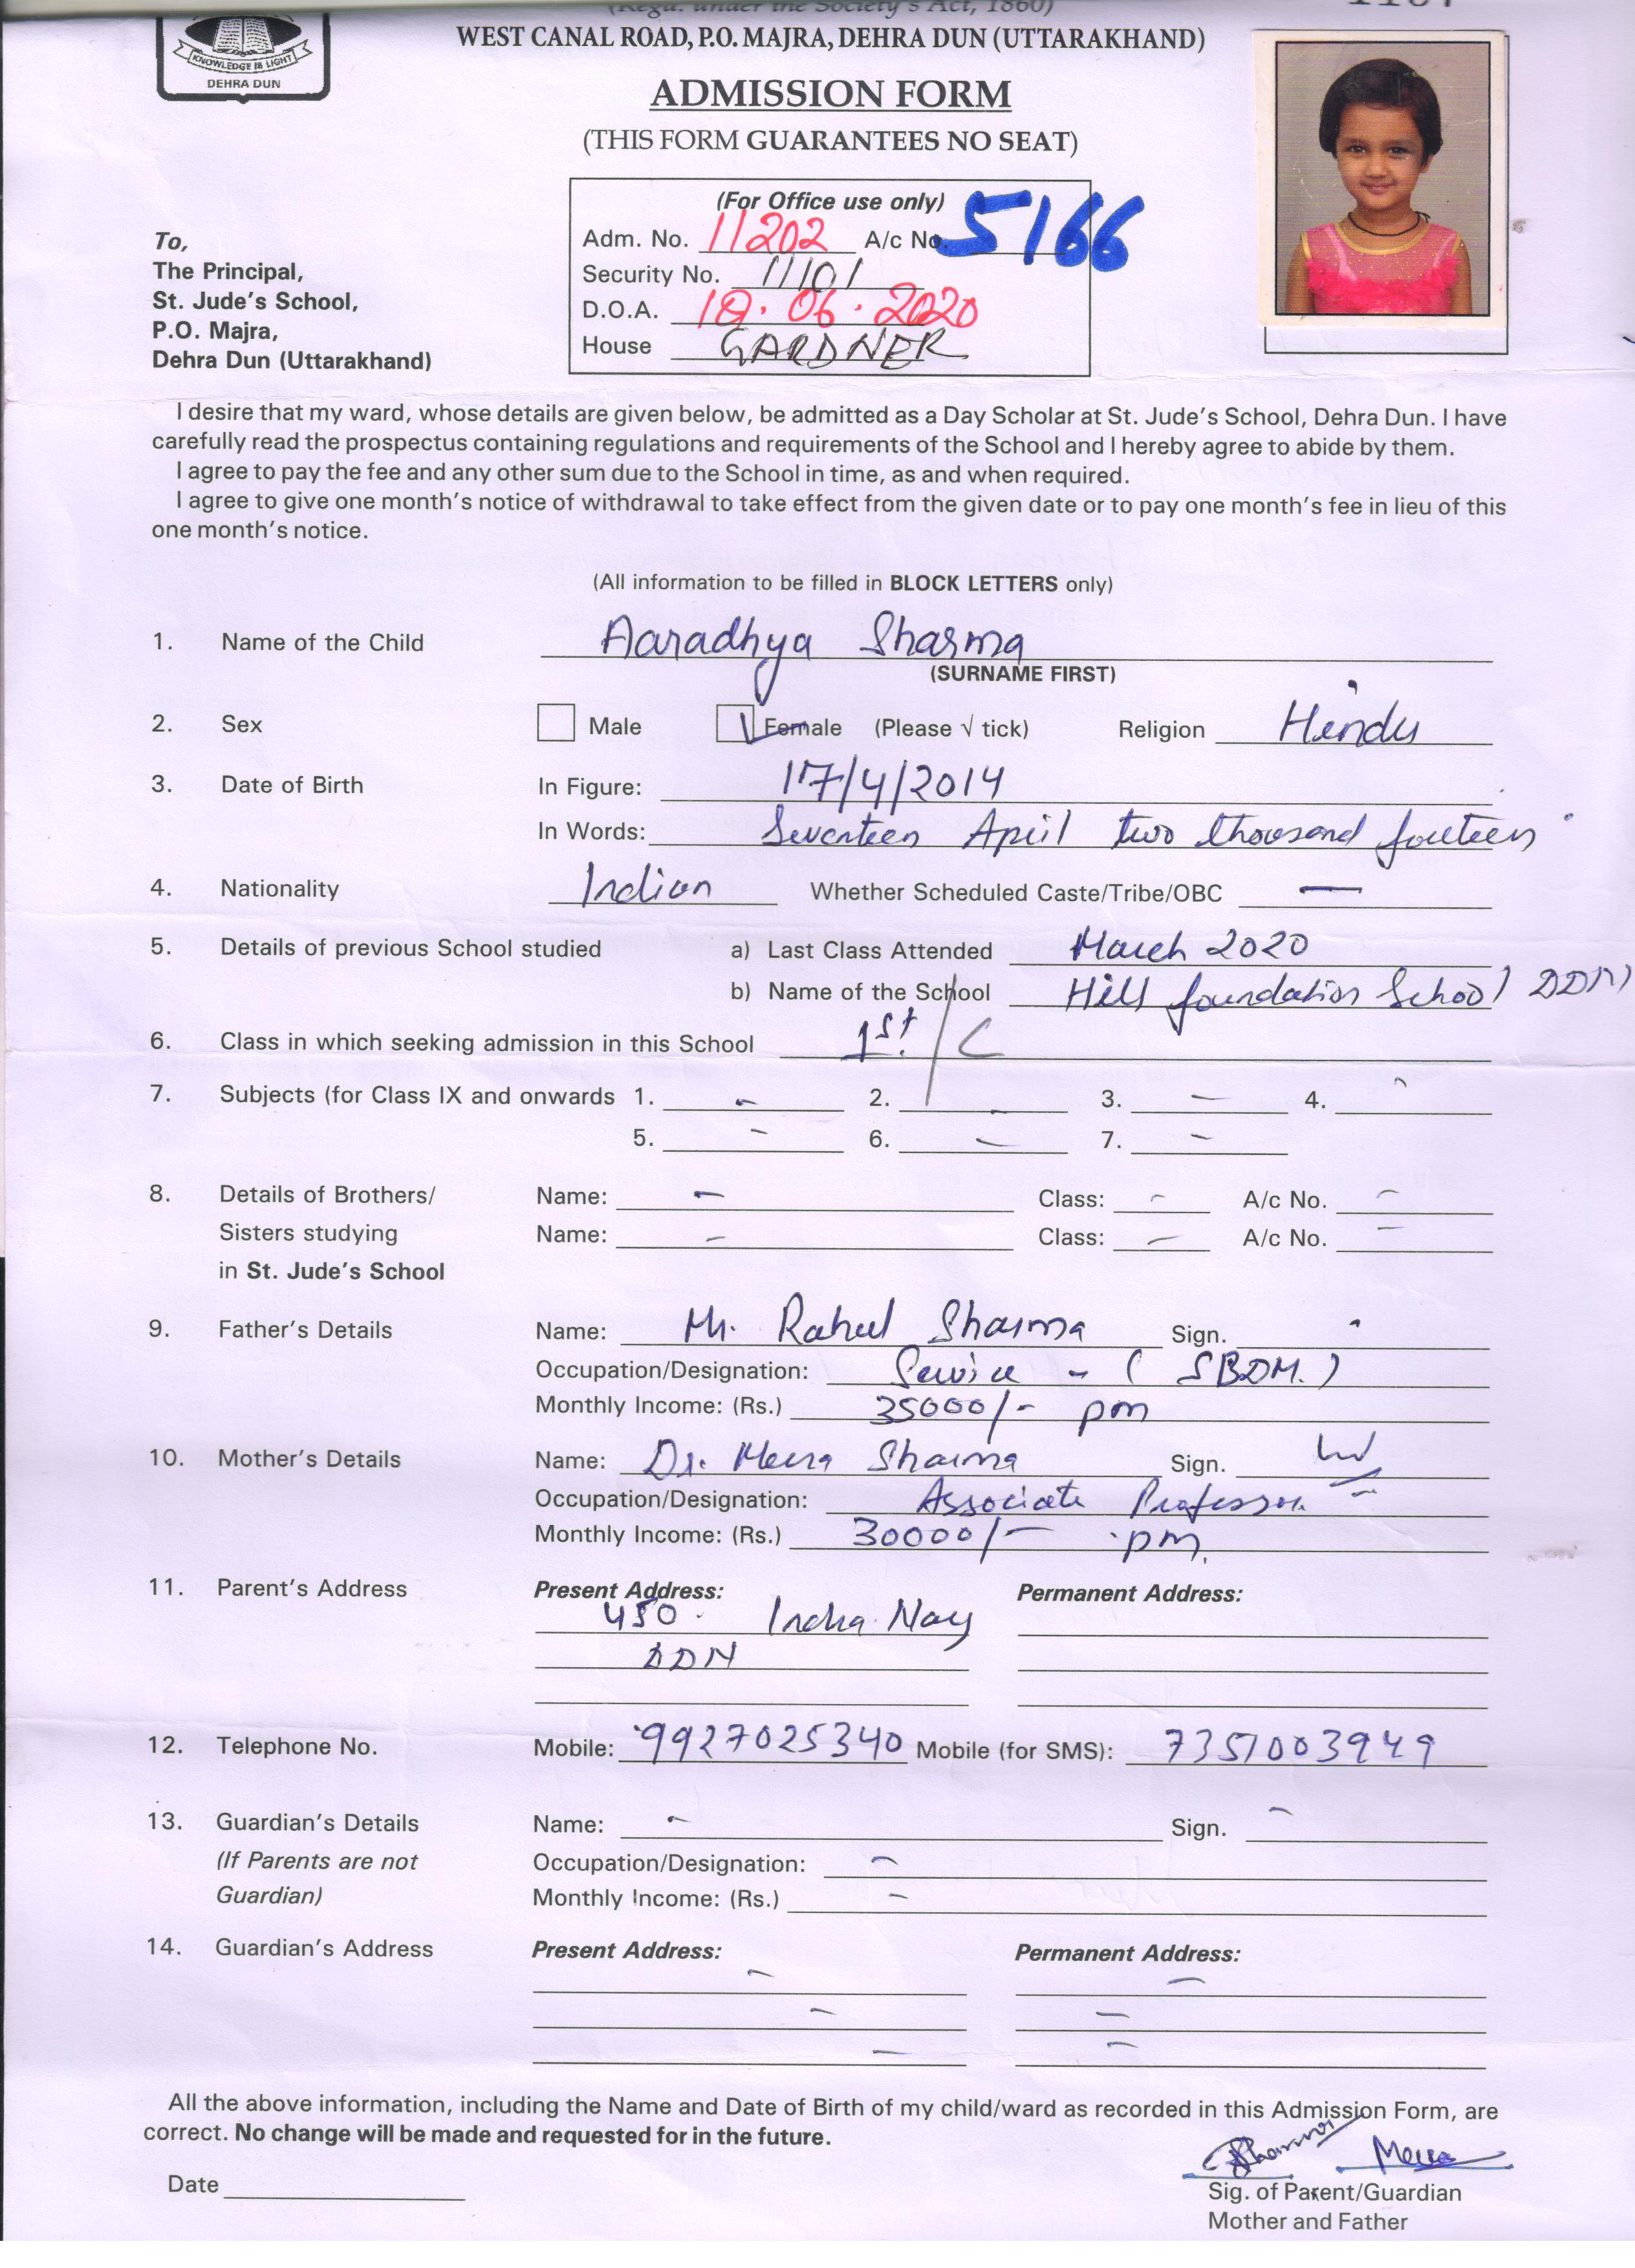 (Regd. under the Society's Act, 1860)
WEST CANAL ROAD, P.O. MAJRA, DEHRA DUN (UTTARAKHAND)
KNOWLEDGE IS LIGHT
DEHRA DUN
ADMISSION FORM
(THIS FORM GUARANTEES NO SEAT)
(For Office use only)
Adm. No. 11202 A/c No. 5166
Security No. 11101
D.O.A. 18.06.2020
House GARDNER
To,
The Principal,
St. Jude's School,
P.O. Majra,
Dehra Dun (Uttarakhand)
I desire that my ward, whose details are given below, be admitted as a Day Scholar at St. Jude's School, Dehra Dun. I have
carefully read the prospectus containing regulations and requirements of the School and I hereby agree to abide by them.
I agree to pay the fee and any other sum due to the School in time, as and when required.
I agree to give one month's notice of withdrawal to take effect from the given date or to pay one month's fee in lieu of this
one month's notice.
(All information to be filled in BLOCK LETTERS only)
1. Name of the Child Aaradhya Sharma
(SURNAME FIRST)
2. Sex Male Female (Please √ tick) Religion Hindu
3. Date of Birth In Figure: 17/4/2014
In Words: Seventeen April two thousand fourteen
4. Nationality Indian Whether Scheduled Caste/Tribe/OBC —
5. Details of previous School studied a) Last Class Attended March 2020
b) Name of the School Hill foundation School DDN
6. Class in which seeking admission in this School 1st. / C
7. Subjects (for Class IX and onwards 1. - 2. - 3. - 4. -
5. - 6. - 7. -
8. Details of Brothers/ Name: - Class: - A/c No. -
Sisters studying Name: - Class: - A/c No. -
in St. Jude's School
9. Father's Details Name: Mr. Rahul Sharma Sign.
Occupation/Designation: Service - (SBDM.)
Monthly Income: (Rs.) 35000/- pm
10. Mother's Details Name: Dr. Meera Sharma Sign.
Occupation/Designation: Associate Professor
Monthly Income: (Rs.) 30000/- pm.
11. Parent's Address Present Address: Permanent Address:
450. Indra Nag
DDN
12. Telephone No. Mobile: 9927025340 Mobile (for SMS): 7351003949
13. Guardian's Details Name: - Sign. -
(If Parents are not Occupation/Designation: -
Guardian) Monthly Income: (Rs.) -
14. Guardian's Address Present Address: Permanent Address:
- -
- -
- -
All the above information, including the Name and Date of Birth of my child/ward as recorded in this Admission Form, are
correct. No change will be made and requested for in the future.
Sharma Meera
Date
Sig. of Parent/Guardian
Mother and Father